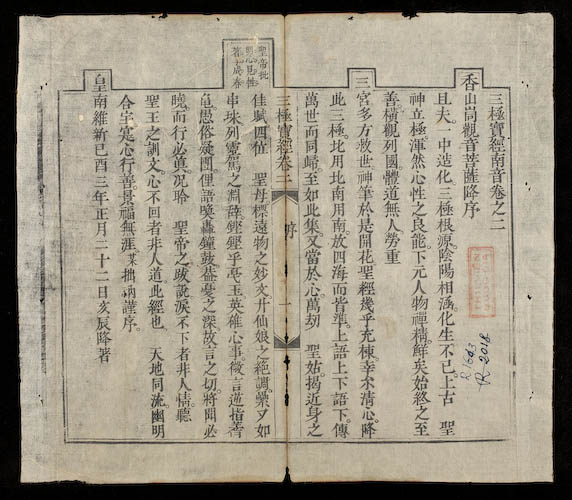 三極寶經南音卷之二
香山尚觀音菩薩降序
且夫一中造化三極根源陰陽相化生不已上古 聖
神立極渾然心性之良能下元人物禪精鮮矣始煞之至
善橫觀列國體道無人勞重
三宮多方救世神筆於是開花聖經幾乎充棟幸求清心降
此三極北用北南用南放四海而皆準上語上下語下傳
萬世而同歸至如此集又當於心萬刼 聖姑揭近身之
三極寶經卷二 序 一
佳賦四位 聖母標遠物之妙文廾仙娘之絕調纍又如
串珠列靈駕之淵乎亮玉英雄心事微言道指菩
愚俗疑團俚語喚轟鐘鼓藎憂之深故言之切將聞必
曉而行必眞况聆 聖帝之跋說淚不下者非人情聽
聖王之訓文心不回者非人道此經也 天地同流幽明
合宇寔心行善景福無涯某拙訥謹序
皇南維新己酉三年正月二十二日亥辰降著
聖帝批
R.1683
R.2018